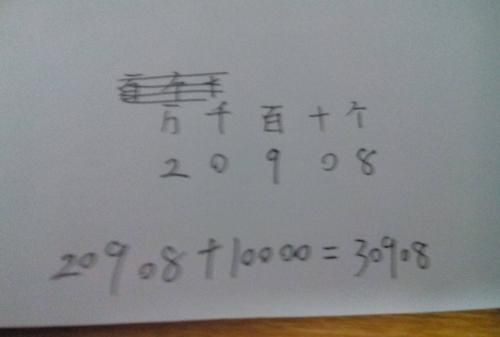 万千百十个
20908
20908+10000=30908